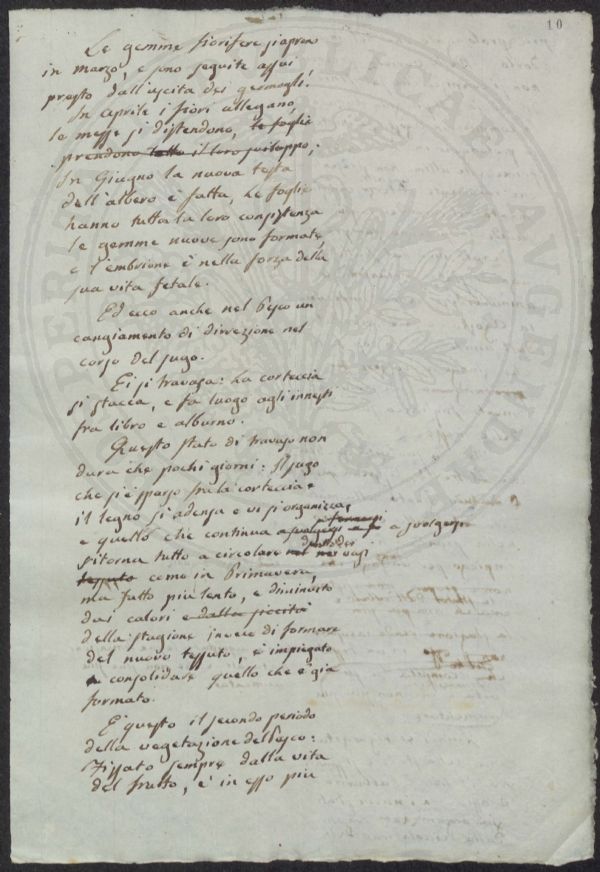 10
Le gemme fiorifere si aprono
in marzo, e sono seguite assai
presto dall'uscita dei germogli.
In aprile i fiori allegano,
le messe si distendono, le foglie
prendono tutto il loro sviluppo;
In Giugno la nuova testa
dell'albero è fatta, Le foglie
hanno tutta la loro consistenza
le gemme nuove sono formate,
e l'embrione è nella forza della
sua vita fetale.
Ed ecco anche nel Pesco un
cangiamento di direzione nel
corso del sugo.
Ei si travasa: La corteccia
si stacca, e fa luogo agli innesti
fra libro e alburno.
Questo stato di travaso non
dura che pochi giorni: Il sugo
che si è sparso fra la corteccia e
il legno si adensa e vi si organizza,
e quello che continua a svolgersi
ritorna tutto a circolare nei vasi
tessuto come in Primavera,
ma fatto più lento, e diminuito
dai calori e dalla siccità
della stagione invece di formare
del nuovo tessuto, è impiegato
a consolidare quello che è già
formato.
È questo il secondo periodo
della vegetazione del Pesco:
Fissato sempre dalla vita
del frutto, è in esso più